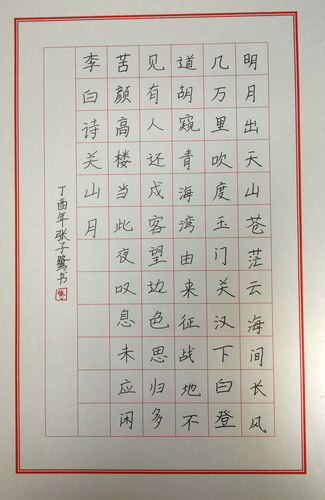 明月出天山苍茫云海间长风
几万里吹度玉门关汉下白登
道胡窥青海湾由来征战地不
见有人还戍客望边色思归多
苦颜高楼当此夜叹息未应闲
李白诗关山月
丁酉年张子鹭书